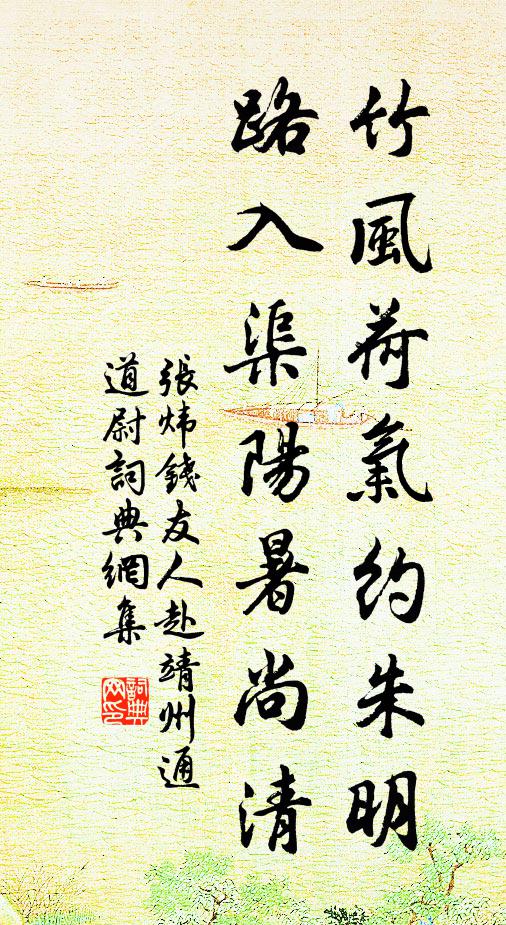 竹風荷氣約朱明
路入渠陽暑尚清
張炜餞友人赴靖州通
道尉詞典網集
詞典
网印